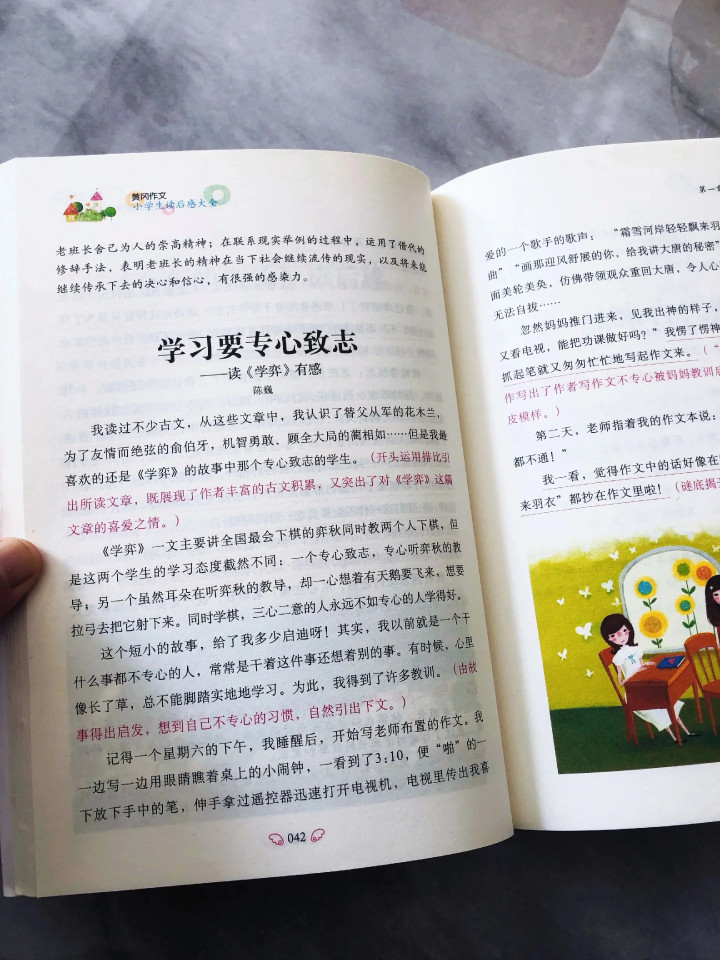 黄冈作文
小学生读后感大全
老班长舍己为人的崇高精神；在联系现实举例的过程中，运用了借代的
修辞手法，表明老班长的精神在当下社会继续流传的现实，以及将来能
继续传承下去的决心和信心，有很强的感染力。
学习要专心致志
——读《学弈》有感
陈巍
我读过不少古文，从这些文章中，我认识了替父从军的花木兰，
为了友情而绝弦的俞伯牙，机智勇敢、顾全大局的蔺相如……但是我最
喜欢的还是《学弈》的故事中那个专心致志的学生。（开头运用排比引
出所读文章，既展现了作者丰富的古文积累，又突出了对《学弈》这篇
文章的喜爱之情。）
《学弈》一文主要讲全国最会下棋的弈秋同时教两个人下棋，但
是这两个学生的学习态度截然不同：一个专心致志，专心听弈秋的教
导；另一个虽然耳朵在听弈秋的教导，却一心想着有天鹅要飞来，想要
拉弓去把它射下来。同时学棋，三心二意的人永远不如专心的人学得好。
这个短小的故事，给了我多少启迪呀！其实，我以前就是一个干
什么事都不专心的人，常常是干着这件事还想着别的事。有时候，心里
像长了草，总不能脚踏实地地学习。为此，我得到了许多教训。（由故
事得出启发，想到自己不专心的习惯，自然引出下文。）
记得一个星期六的下午，我睡醒后，开始写老师布置的作文。我
一边写一边用眼睛瞧着桌上的小闹钟，一看到了3:10，便“啪”的一
下放下手中的笔，伸手拿过遥控器迅速打开电视机，电视里传出我喜
042
第一章
爱的一个歌手的歌声：“霜雪河岸轻轻飘来羽
曲”“画那迎风舒展的你，给我讲大唐的秘密”
面美轮美奂，仿佛带领观众重回大唐，令人心
无法自拔……
忽然妈妈推门进来，见我出神的样子，
又看电视，能把功课做好吗？”我愣了愣神
抓起笔就又匆匆忙忙地写起作文来。（“
作写出了作者写作文不专心被妈妈教训后
皮模样。）
第二天，老师指着我的作文本说：
都不通！”
我一看，觉得作文中的话好像在
来羽衣”都抄在作文里啦！（谜底揭于